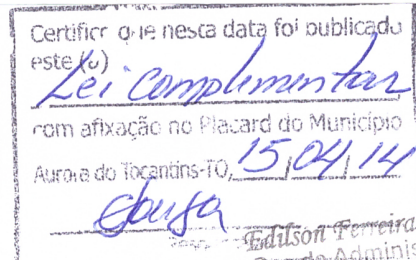 Certifico que nesta data foi publicado
este (a)
Lei Complementar
com afixação no Placard do Município
Aurora do Tocantins-TO, 15/04/14
Souza
Edilson Ferreira
de Adminis